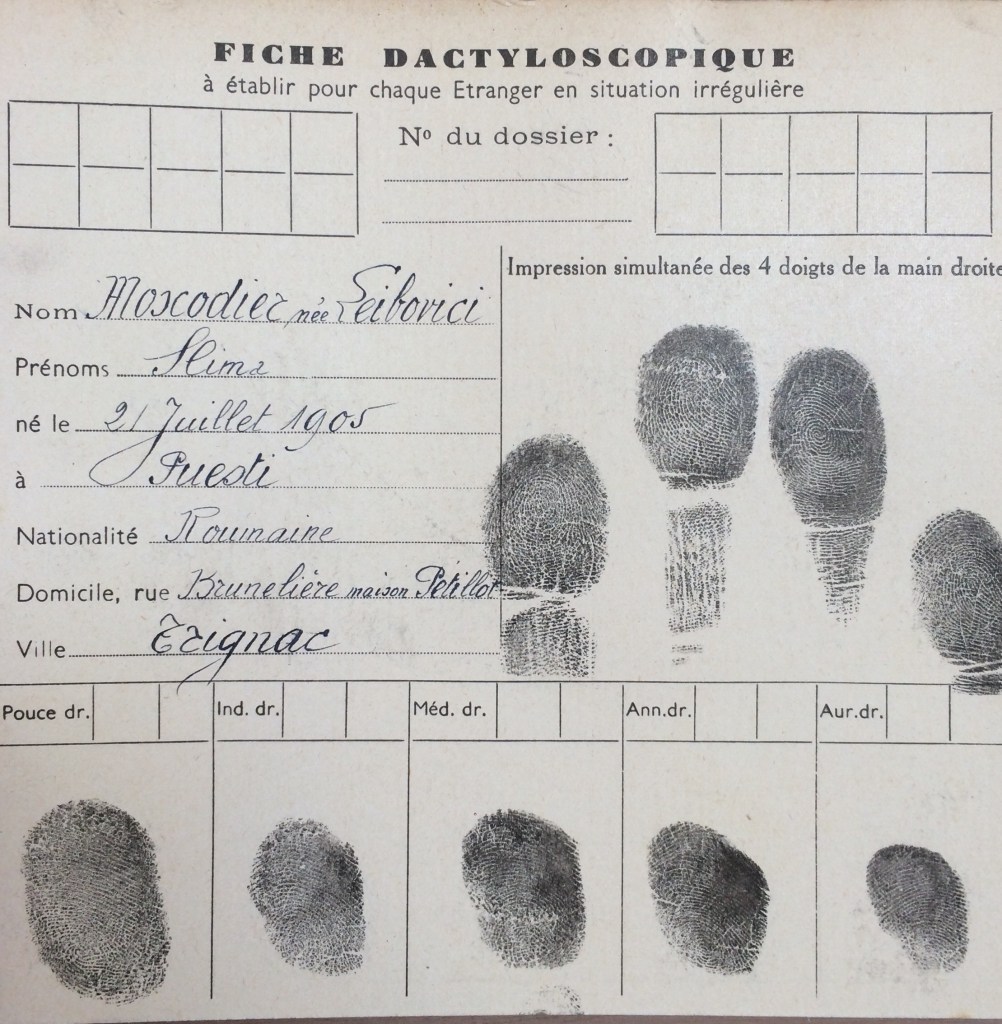 FICHE DACTYLOSCOPIQUE
à établir pour chaque Etranger en situation irrégulière
Nº du dossier :
Impression simultanée des 4 doigts de la main droite
Nom Moscodier née Leibovici
Prénoms Slima
né le 21 Juillet 1905
à Puesti
Nationalité Roumaine
Domicile, rue Brunelière maison Pétillot
Ville Trignac
Pouce dr. Ind. dr. Méd. dr. Ann.dr. Aur.dr.